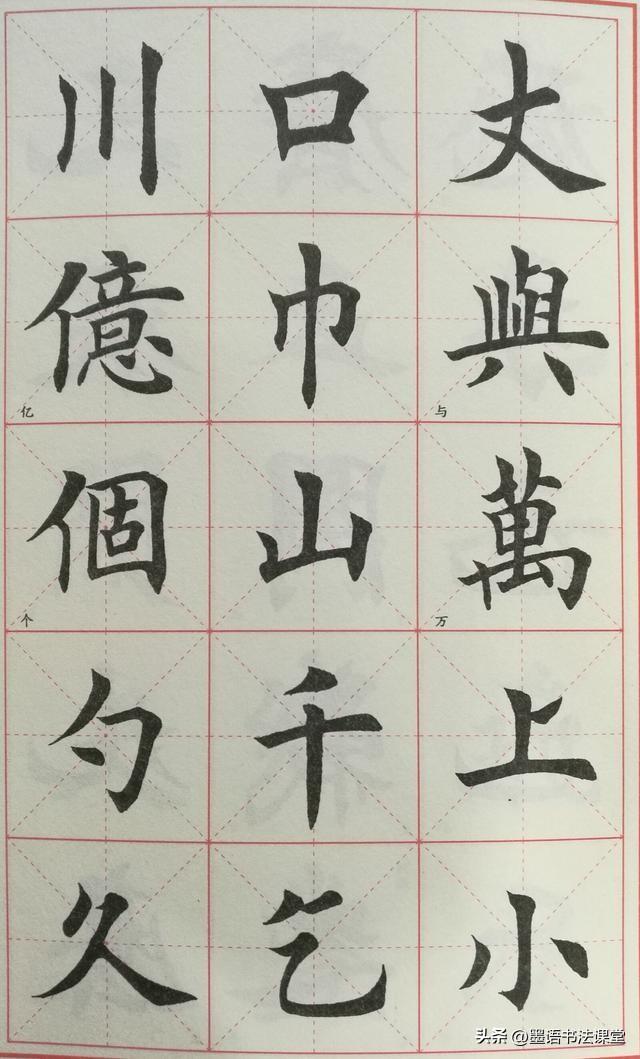 丈與萬上小
与
万
口巾山千乞
川億個勺久
亿
个
头条 @墨语书法课堂